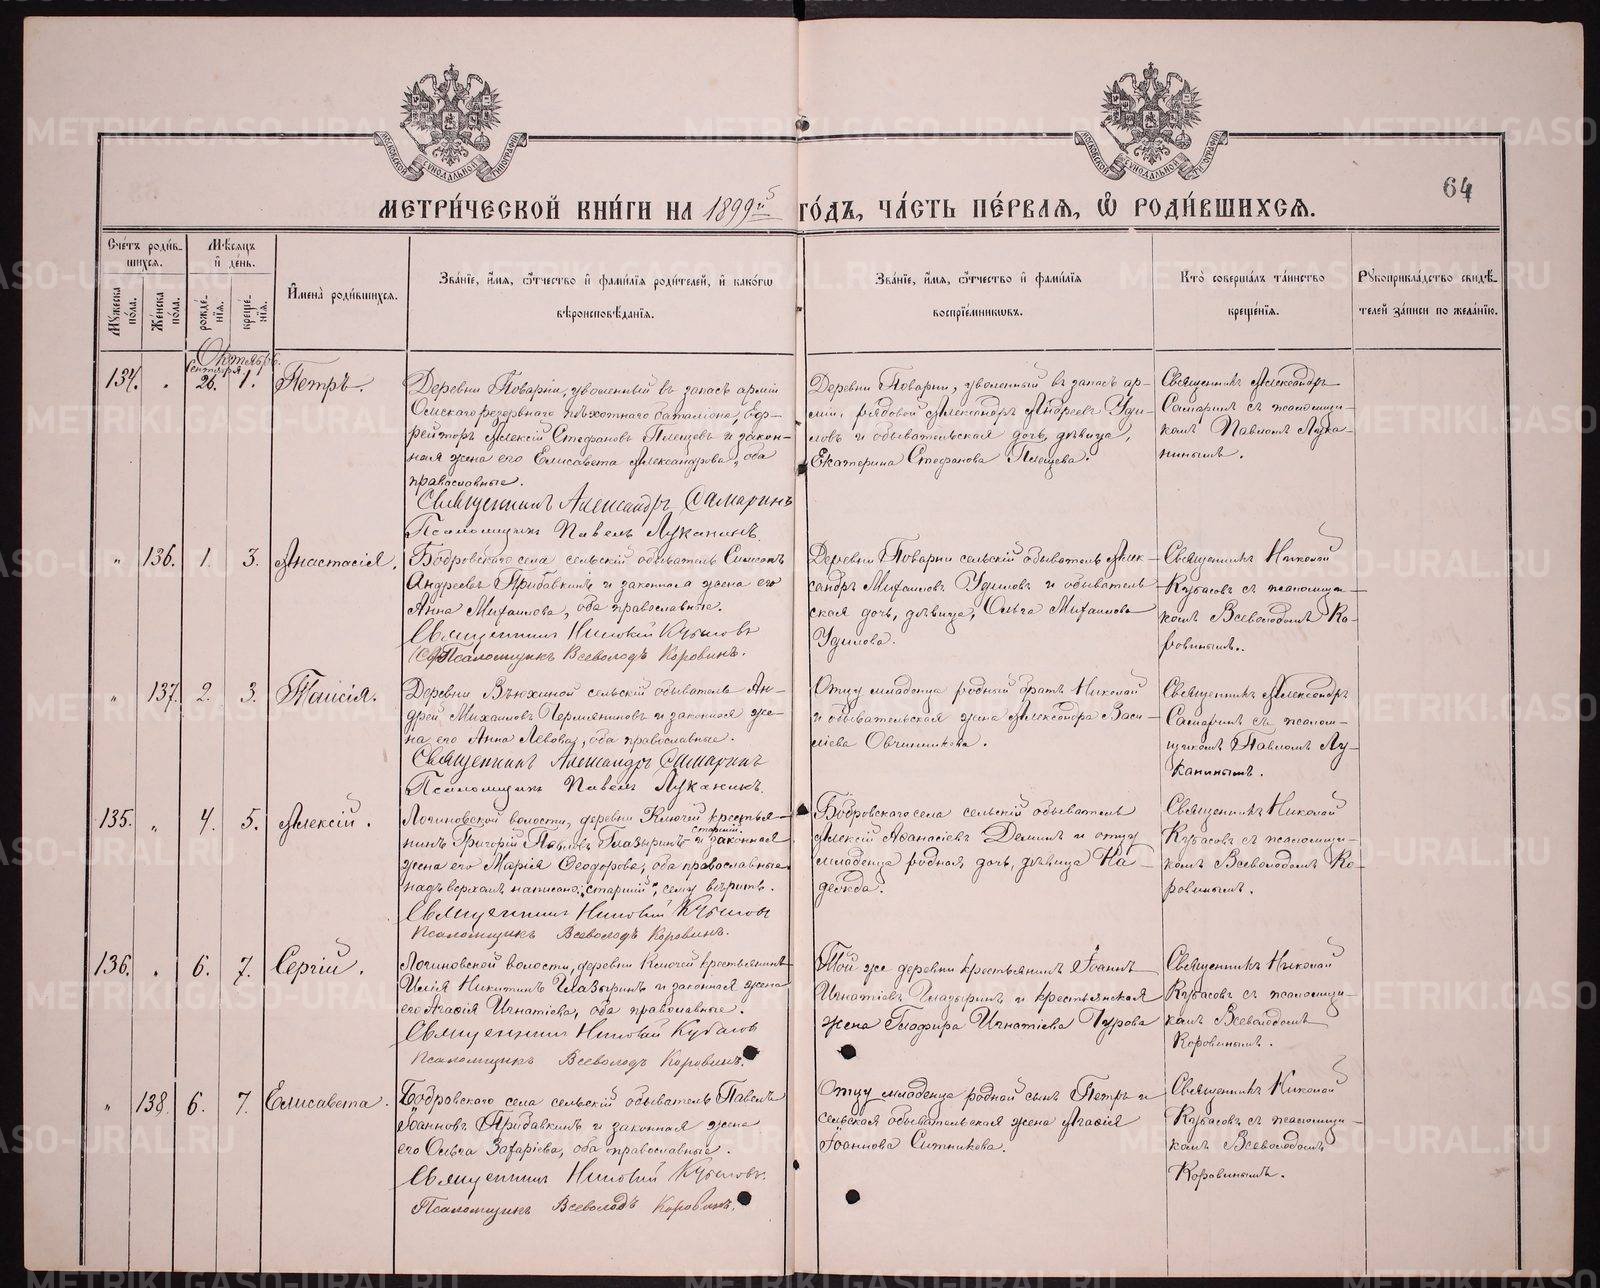 МОСКОВСКОЙ СѴНОДАЛЬНОЙ ТИПОГРАФІИ
МОСКОВСКОЙ СѴНОДАЛЬНОЙ ТИПОГРАФІИ
64
МЕТРИЧЕСКОЙ КНИГИ НА 1899й ГОДЪ, ЧАСТЬ ПЕРВАЯ, Ѡ РОДИВШИХСЯ.
Счетъ родив-
шихся.
Мужеска пола.
Женска пола.
Мѣсяцъ и день.
рожденія.
крещенія.
Имена родившихся.
Званіе, имя, ѿчество и фамилія родителей, и какогѡ
вѣроисповѣданія.
Званіе, имя, ѿчество и фамилія
воспріемникѡвъ.
Кто совершалъ таинство
крещенія.
Рукоприкладство свидѣ-
телей записи по желанію.
Октябрь.
Сентября
134. 26. 1. Петръ.
Деревни Поварни, уволенный въ запасъ арміи
Омскаго резервнаго пѣхотнаго баталіона, Еф-
рейторъ Алексій Стефановъ Плещевъ и закон-
ная жена его Елисавета Александрова, оба
православные.
Священникъ Александръ Самаринъ
Псаломщикъ Павелъ Луканинъ.
Деревни Поварни, уволенный въ запасъ ар-
міи, рядовой Александръ Андреевъ Уди-
ловъ и обывательская дочь, дѣвица,
Екатерина Стефанова Плещева.
Священникъ Александръ
Самаринъ съ псаломщи-
комъ Павломъ Лука-
нинымъ.
" 136. 1. 3. Анастасія.
Бобровскаго села сельскій обыватель Симеонъ
Андреевъ Прибавкинъ и законная жена его
Анна Михаилова, оба православные.
Священникъ Николай Кубасовъ
Псаломщикъ Всеволодъ Коровинъ.
Деревни Поварни сельскій обыватель Алек-
сандръ Михаиловъ Удиловъ и обыватель-
ская дочь, дѣвица, Ольга Михаилова
Удилова.
Священникъ Николай
Кубасовъ съ псаломщи-
комъ Всеволодомъ Ко-
ровинымъ.
" 137. 2. 3. Таисія.
Деревни Вьюхиной сельскій обыватель Ан-
дрей Михаиловъ Пермяниковъ и законная же-
на его Анна Левова, оба православные.
Священникъ Александръ Самаринъ
Псаломщикъ Павелъ Луканинъ.
Отцу младенца родный братъ Николай
и обывательская жена Александра Васи-
лиева Овчинникова.
Священникъ Александръ
Самаринъ съ псалом-
щикомъ Павломъ Лу-
канинымъ.
135. " 4. 5. Алексій.
Логиновской волости, деревни Ключей крестья-
нинъ Григорій Павловъ Глазыринъ старшій и законная
жена его Марія Ѳеодорова, оба православные
надъ верхомъ написано: „старшій“, сему вѣрить.
Священникъ Николай Кубасовъ
Псаломщикъ Всеволодъ Коровинъ.
Бобровскаго села сельскій обыватель
Алексій Аѳанасіевъ Деминъ и отцу
младенца родная дочь, дѣвица На-
дежда.
Священникъ Николай
Кубасовъ съ псаломщи-
комъ Всеволодомъ Ко-
ровинымъ.
136. " 6. 7. Сергій.
Логиновской волости, деревни Ключей крестьянинъ
Илія Никитинъ Глазыринъ и законная жена
его Агафія Игнатіева, оба православные.
Священникъ Николай Кубасовъ
Псаломщикъ Всеволодъ Коровинъ.
Той же деревни крестьянинъ Іоаннъ
Игнатіевъ Глазыринъ и крестьянская
жена Глафира Игнатіева Гурова
Священникъ Николай
Кубасовъ съ псаломщи-
комъ Всеволодомъ
Коровинымъ.
" 138. 6. 7. Елисавета.
Бобровскаго села сельскій обыватель Павелъ
Іоанновъ Прибавкинъ и законная жена
его Ольга Захаріева, оба православные.
Священникъ Николай Кубасовъ.
Псаломщикъ Всеволодъ Коровинъ.
Отцу младенца родной сынъ Петръ и
сельская обывательская жена Агафія
Іоаннова Ситникова.
Священникъ Николай
Кубасовъ съ псаломщи-
комъ Всеволодомъ
Коровинымъ.
METRIKI.GASO-URAL.RU